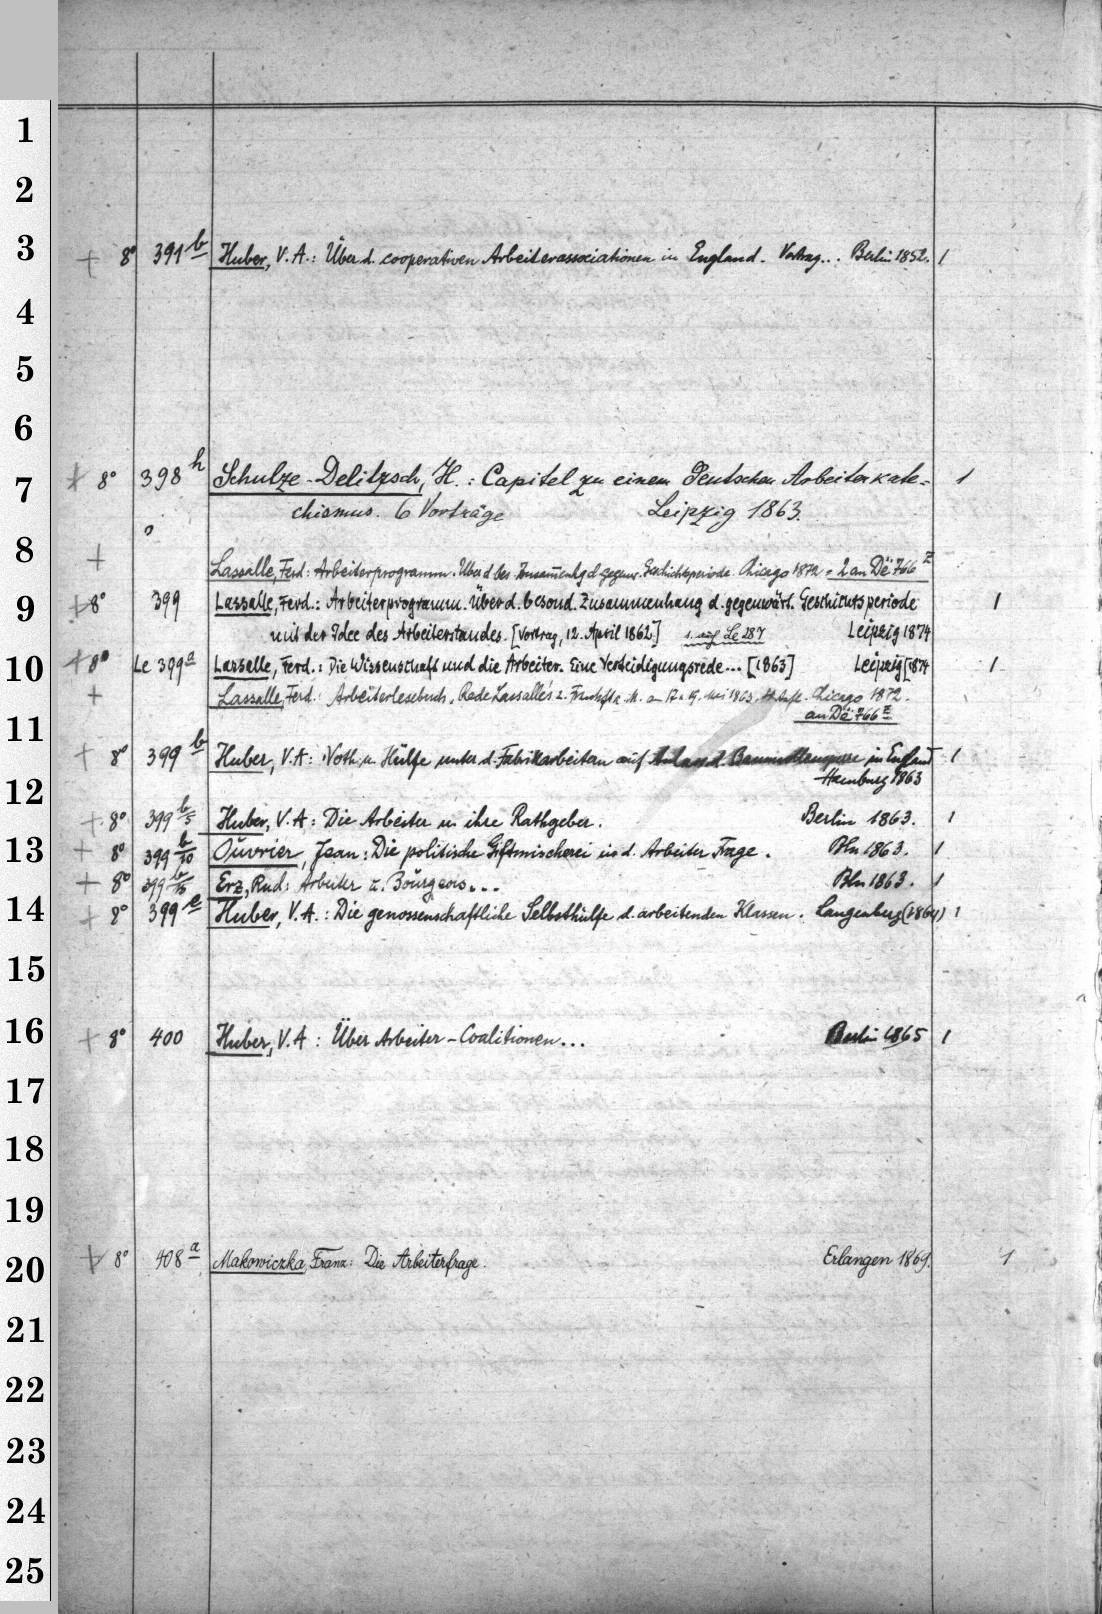 1
2
3
+ 8° 391 b Huber, V. A.: Über d. cooperativen Arbeiterassociationen in England. Vortrag... Berlin 1852. 1
4
5
6
7
+ 8° 398 h Schulze-Delitzsch, H.: Capitel zu einem Deutschen Arbeiterkate=
chismus. 6 Vorträge Leipzig 1863.
8
+ Lassalle, Ferd: Arbeiterprogramm. Über d. bes. d. gegenw. Geschichtsperiode. Chicago 1872 = 2 an Dë 766 Z
9
+ 8° 399 Lassalle, Ferd.: Arbeiterprogramm. Über d. besond. Zusammenhang d. gegenwärt. Geschichtsperiode 1
mit der Idee des Arbeiterstandes. [Vortrag, 12. April 1862] Le 287 Leipzig 1874
10
+ 8° Le 399 a Lassalle, Ferd.: Die Wissenschaft und die Arbeiter. Eine Verteidigungsrede... [1863] Leipzig [1874 1
+ Lassalle, Ferd: Arbeiterlesebuch. Rede Lassalle's z. Frankft a. M. am 17. u. 19. Mai 1863. Chicago 1872.
an Dë 766 Z
11
+ 8° 399 b Huber, V. A: Noth u. Hülfe unter d. Fabrikarbeitern auf Anlass d. Baumwollensperre in England 1
Hamburg 1863
12
+ 8° 399 b/5 Huber, V. A: Die Arbeiter u. ihre Rathgeber. Berlin 1863. 1
13
+ 8° 399 b/10 Ouvrier, Jean: Die politische Giftmischerei in d. Arbeiter Frage. Bln 1863. 1
+ 8° 399 b/15 Erz, Rud: Arbeiter u. Bourgeois... Bln 1863. 1
14
+ 8° 399 e Huber, V. A.: Die genossenschaftliche Selbsthülfe d. arbeitenden Klassen. Langenberg (1864) 1
15
16
+ 8° 400 Huber, V. A: Über Arbeiter-Coalitionen... Berlin 1865 1
17
18
19
20
+ 8° 408 a Makowiczka, Franz: Die Arbeiterfrage. Erlangen 1869. 1
21
22
23
24
25